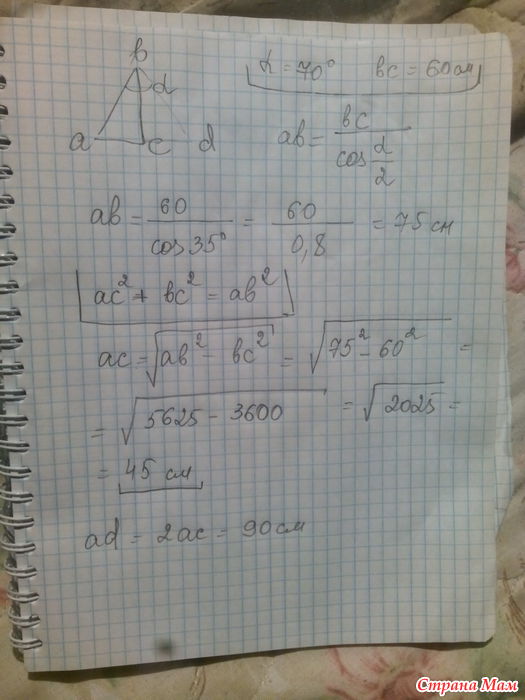 b
α = 70° bc = 60 см
α
a c d
ab = bc / cos α/2
ab = 60 / cos 35° = 60 / 0,8 = 75 см
ac² + bc² = ab²
ac = √(ab² - bc²) = √(75² - 60²) =
= √(5625 - 3600) = √2025 =
= 45 см
ad = 2ac = 90 см
Страна Мам